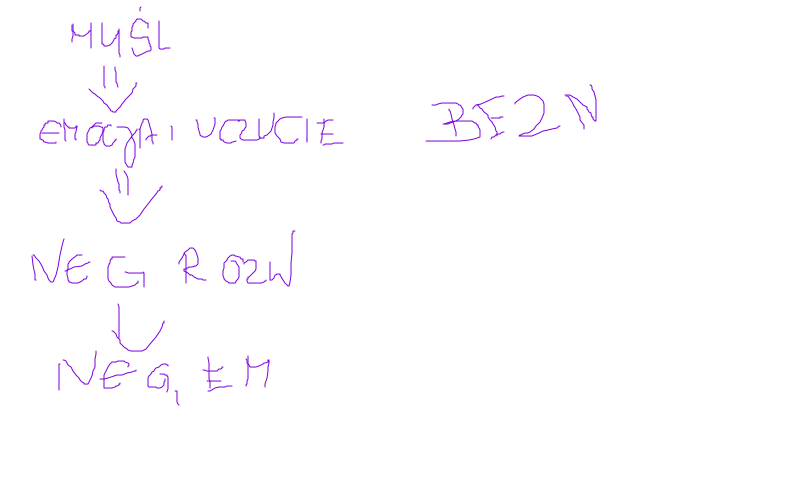 MYŚL
EMOCJA I UCZUCIE
BEZN
NEG ROZW
NEG, EM